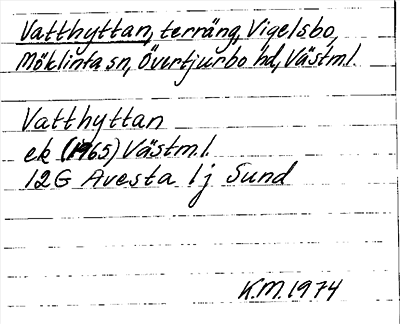 Vatthyttan, terräng, Vigelsbo,
Möklinta sn, Övertjurbo hd, Västml.
Vatthyttan
ek (1965) Västml.
12G Avesta 1j Sund
K.M. 1974